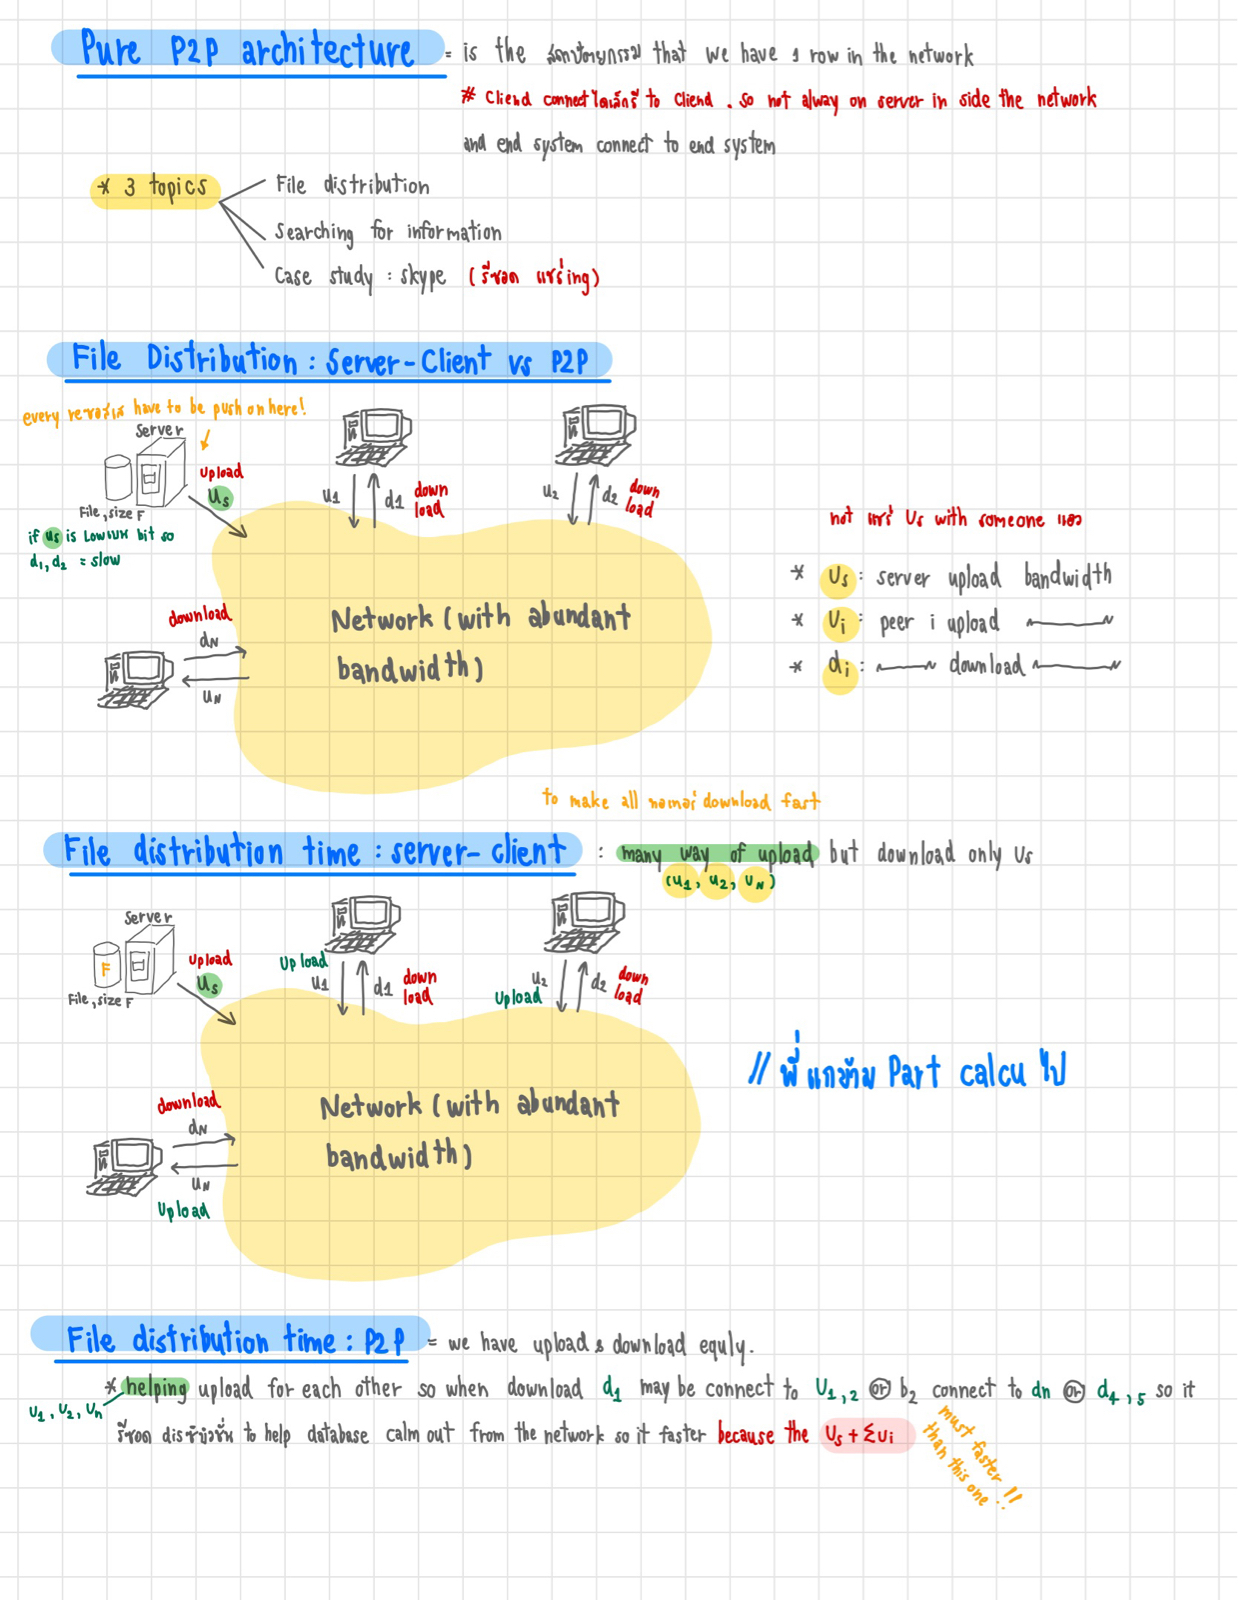 Pure P2P architecture = is the สถาปัตยกรรม that we have 1 row in the network
# Cliend connect ไดเล็กรี to Cliend . so not alway on server in side the network
and end system connect to end system
* 3 topics
File distribution
Searching for information
Case study : skype (รีซอด แชร์ing)
File Distribution : Server-Client vs P2P
every รีซอสเส have to be push on here!
Server
upload
Us
File, size F
if us is Low แบน bit so
d1, d2 = slow
u1
d1
down
load
u2
d2
down
load
download
dN
uN
Network (with abundant
bandwidth)
not แชร์ Us with someone เลย
* Us : server upload bandwidth
* Ui : peer i upload
* di : download
to make all download fast
File distribution time : server-client : many way of upload but download only Us
(u1, u2, uN)
Server
F
File, size F
upload
Us
Upload
u1
d1
down
load
Upload
u2
d2
down
load
download
dN
uN
Upload
Network (with abundant
bandwidth)
// พี่แกข้าม Part calcu ไป
File distribution time : P2P = we have upload & download equly.
* helping upload for each other so when download d1 may be connect to U1,2 or b2 connect to dn or d4,5 so it
U1, U2, Un
รีซอด ดิสทิบิวชั่น to help database calm out from the network so it faster because the Us + Σui
must faster !!
than this one !!